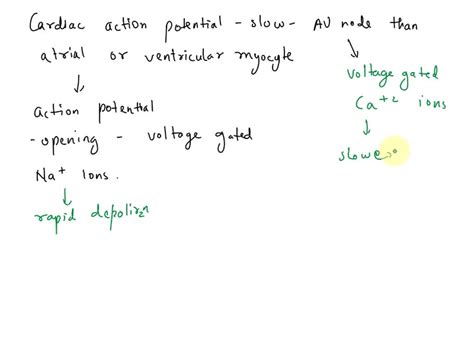 Cardiac action potential - slow - AV node than
atrial or ventricular myocyte
voltage gated
Ca+2 ions
slowe
action potential
- opening - voltage gated
Na+ Ions.
rapid depolirzn